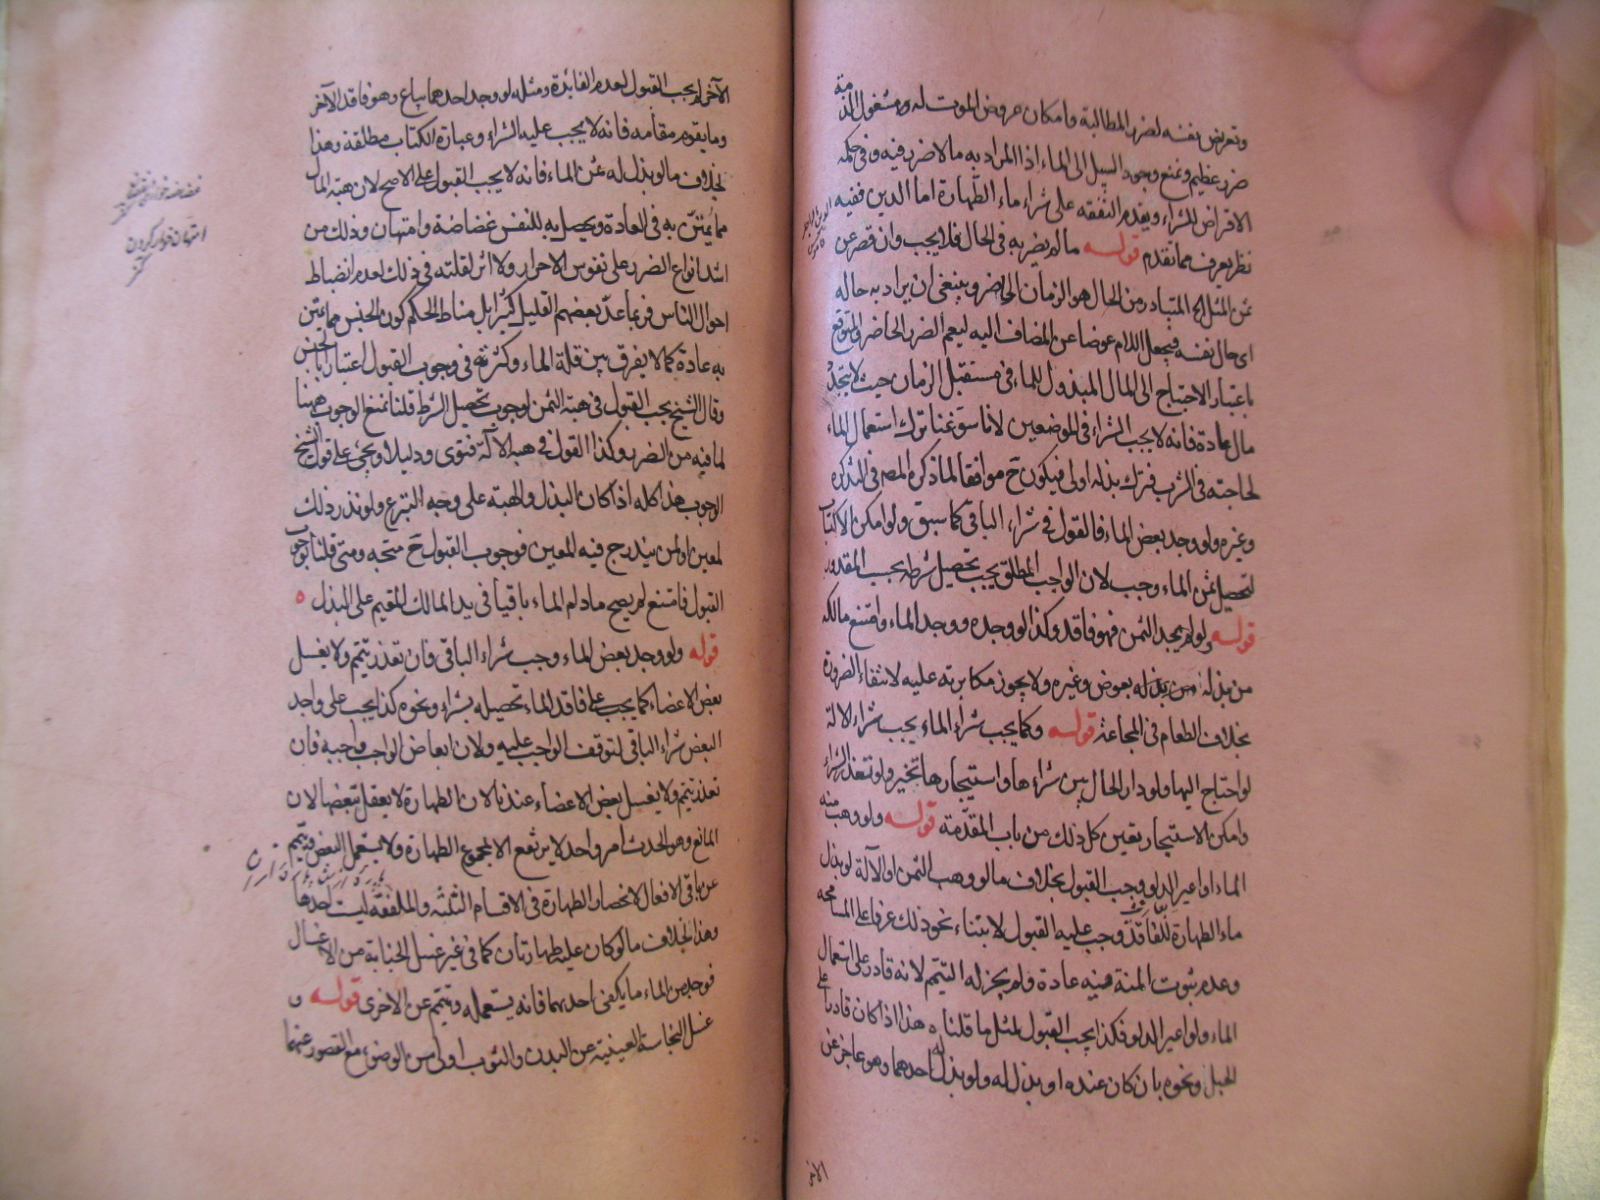 وتعريض نفسه لضرر المطالبة وامكان عروض الموت له وهو مشغول الذمة
ضرر عظيم ونمنع وجود السبيل الى الماء اذ المراد به ما لا ضرر فيه وفي حكمه
الاقراض للشراء ويقدم النفقه على شراء ماء الطهارة اما الدين ففيه
نظر يعرف مما تقدم قولـه ما لم يضر به في الحال فلا يجب وان قصر عن
ثمن المثل اه المتبادر من الحال هو الزمان الحاضر وينبغي ان يراد به حاله
اي حال نفسه فيجعل اللام عوضا عن المضاف اليه ليعم الضرر الحاضر والمتوقع
باعتبار الاحتياج الى المال المبذول للماء في مستقبل الزمان حيث لا يتجدد
مال عادة فانه لا يجب الشراء في الموضعين لانا سوغنا ترك استعمال الماء
لحاجته في الشرب فترك بذله اولى فيكون ح موافقا لما ذكره المص في التذكره
وغيره ولو وجد بعض الماء فالقول في شراء الباقي كما سبق ولو امكن الاكتساب
لتحصيل ثمن الماء وجب لان الواجب المطلق يجب تحصيل شرطه بحسب المقدور
قولـه ولو لم يجد الثمن فهو فاقد وكذا لو وجده ووجد الماء وامتنع مالكه
من بذله بعوض وغيره ولا يجوز مكابرته عليه لانتفاء الضرورة
بخلاف الطعام في المجاعة قولـه وكما يجب شراء الماء يجب شراء الالة
لو احتاج اليها ولو دار الحال بين شراءها واستيجارها تخير ولو تعذر الشراء
وامكن الاستيجار تعين كل ذلك من باب المقدمة قولـه ولو وهب منه
الماء او اعير الدلو وجب القبول بخلاف ما لو وهب الثمن او الآلة لو بذل
ماء الطهارة للفاقد وجب عليه القبول لابتناء نحو ذلك عرفا على المسامحه
وعدم ثبوت المنة فيه عادة ولم يجز له التيمم لانه قادر على استعمال
الماء ولو اعير الدلو فكذا يجب القبول لمثل ما قلناه هذا اذا كان قادرا على
الحبل ونحوه بان كان عنده او بذل له ولو بذل له احدهما وهو عاجز عن
الآخر لم يجب القبول لعدم الفايدة ومثله لو وجد احدهما يباع وهو فاقد الآخر
وما يقوم مقامه فانه لا يجب عليه الشراء وعبارة الكتاب مطلقة وهذا
بخلاف ما لو بذل له ثمن الماء فانه لا يجب القبول على الاصح لان هبة المال
مما يمتن به في العادة ويحصل به للنفس غضاضة وامتهان وذلك من
اشد انواع الضرر على نفوس الاحرار ولا اثر لقلته في ذلك لعدم انضباط
احوال الناس فربما عد بعضهم القليل كثيرا بل مناط الحكم كون الجنس مما يمتن
به عادة كما لا يفرق بين قلة الماء وكثرته في وجوب القبول اعتبارا بالجنس
وقال الشيخ يجب القبول في هبة الثمن لوجوب تحصيل الشرط قلنا نمنع الوجوب هيهنا
لما فيه من الضرر وكذا القول في هبة الآلة فتوى ودليلا ويجئ على قول الشيخ
الوجوب هذا كله اذا كان البذل والهبة على وجه التبرع ولو نذر ذلك
لمعين او لمن يندرج فيه المعين فوجوب القبول ح متجه ومتى قلنا بوجوب
القبول فامتنع لم يصح مادام الماء باقيا في يد المالك المقيم على البذل ٥
قوله ولو وجد بعض الماء وجب شراء الباقي فان تعذر تيمم ولا يغسل
بعض الاعضاء كما يجب على فاقد الماء تحصيله بشراء ونحوه كذا يجب على واجد
البعض شراء الباقي لتوقف الواجب عليه ولان ابعاض الواجب واجبة فان
تعذر تيمم ولا يغسل بعض الاعضاء عندنا لان الطهارة لا يعقل بتعضها لان
المانع وهو الحدث امر واحد لا يرتفع الا بمجموع الطهارة ولا يستعمل البعض ويتيمم
عن باقي الافعال لانحصار الطهارة في الاقسام الثلثة والملفقة ليست احدها
وهذا بخلاف ما لو كان عليه طهارتان كما في غير غسل الجنابة من الاغسال
فوجد من الماء ما يكفي احديهما فانه يستعمله ويتيمم عن الاخرى قولـه و
غسل النجاسة العينية عن البدن والثوب اولى من الوضوء مع القصور عنهما
امتهان خوار كردن
كنز